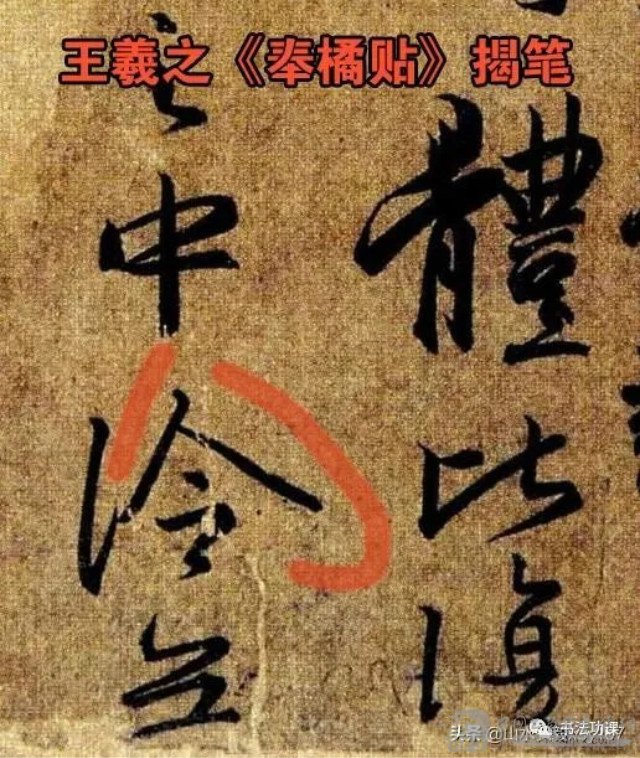 王羲之《奉橘贴》揭笔
體比復
之中冷無
书法功课
头条